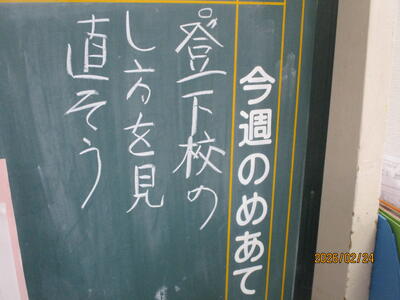 今週のめあて
登下校の
し方を見
直そう
2025/02/24